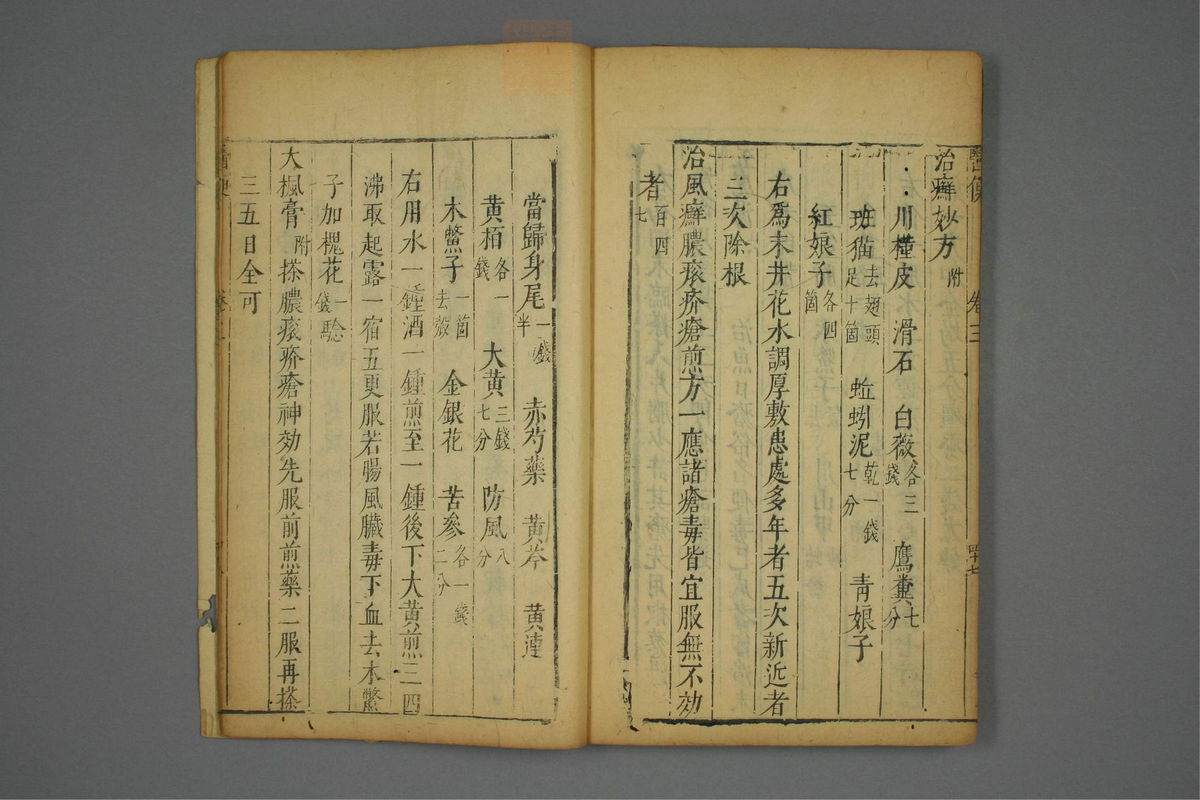 醫便 卷三 四十七
治癬妙方附
川槿皮 滑石 白薇各三錢 鷹糞七分
班猫去翅頭足十箇 蚯蚓泥乾一錢七分 青娘子
紅娘子各四箇
右爲末井花水調厚敷患處多年者五次新近者
三次除根
治風癬膿瘡疥瘡煎方一應諸瘡毒皆宜服無不効
者百四七
當歸身尾一錢半 赤芍藥 黄芩 黄連
黄栢各一錢 大黄三錢七分 防風八分
木鱉子一箇去殼 金銀花 苦參各一錢二分
右用水一鍾酒一鍾煎至一鍾後下大黄煎三四
沸取起露一宿五更服若腸風臟毒下血去木鱉
子加槐花一錢騐
大楓膏附搽膿瘡疥瘡神効先服前煎藥二服再搽
三五日全可